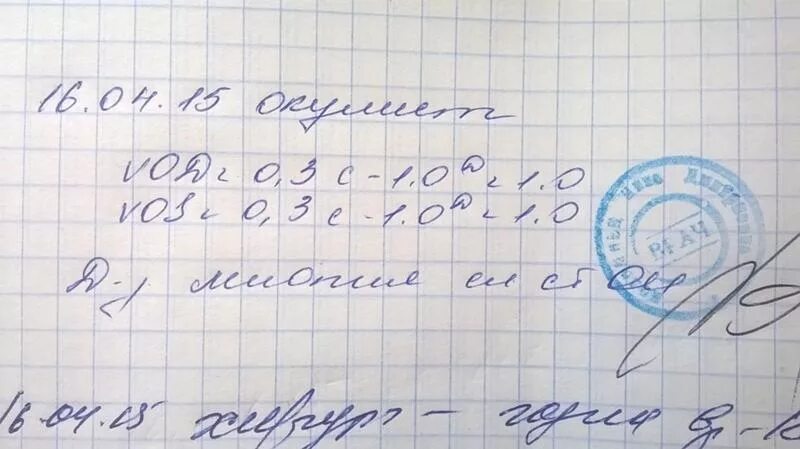 16.04.15 окулист
VOD = 0,3 с -1.0 D = 1.0
VOS = 0,3 с -1.0 D = 1.0
Д-з миопия сл ст OU
ВРАЧ
16.04.15 хирург - годен